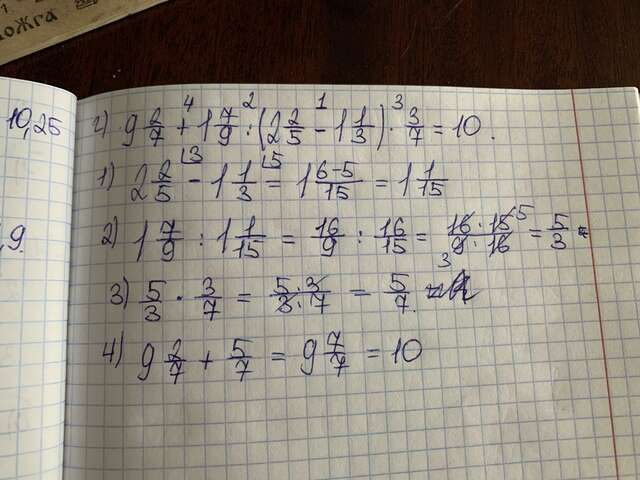 ожга
10,25
,9
г) 9 2/7 + 1 7/9 : (2 2/5 - 1 1/3) · 3/7 = 10.
4 2 1 3
1) 2 2/5 - 1 1/3 = 1 6-5/15 = 1 1/15
2) 1 7/9 : 1 1/15 = 16/9 : 16/15 = 16·15/9·16 = 5/3 =
3) 5/3 · 3/7 = 5·3/3·7 = 5/7.
4) 9 2/7 + 5/7 = 9 7/7 = 10